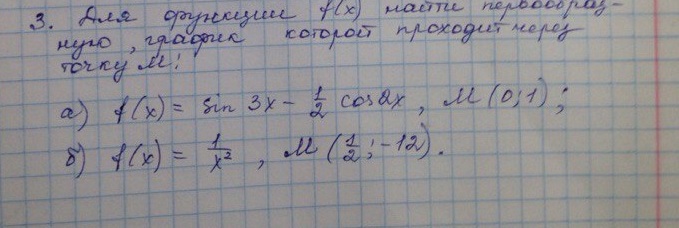 3. Для функции f(x) найти первообраз-
ную, график которой проходит через
точку M:
а) f(x) = sin 3x - 1/2 cos 2x, M (0; 1);
б) f(x) = 1/x², M (1/2; -12).